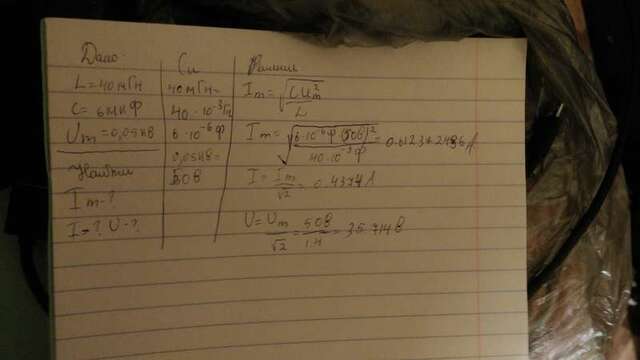 Дано
L = 40 мГн
C = 6 мкФ
Um = 0,05 кВ
Найти
Im - ?
I - ? U - ?
Си
40 мГн =
40 · 10⁻³ Гн
6 · 10⁻⁶ Ф
0,05 кВ =
50 В
Решение
Im = √(CUm²/L)
Im = √(6·10⁻⁶Ф·(50В)²/40·10⁻³Ф) =
I = Im/√2 = 0.4374 А
U = Um/√2 = 50В/1.4 = 35.714 В